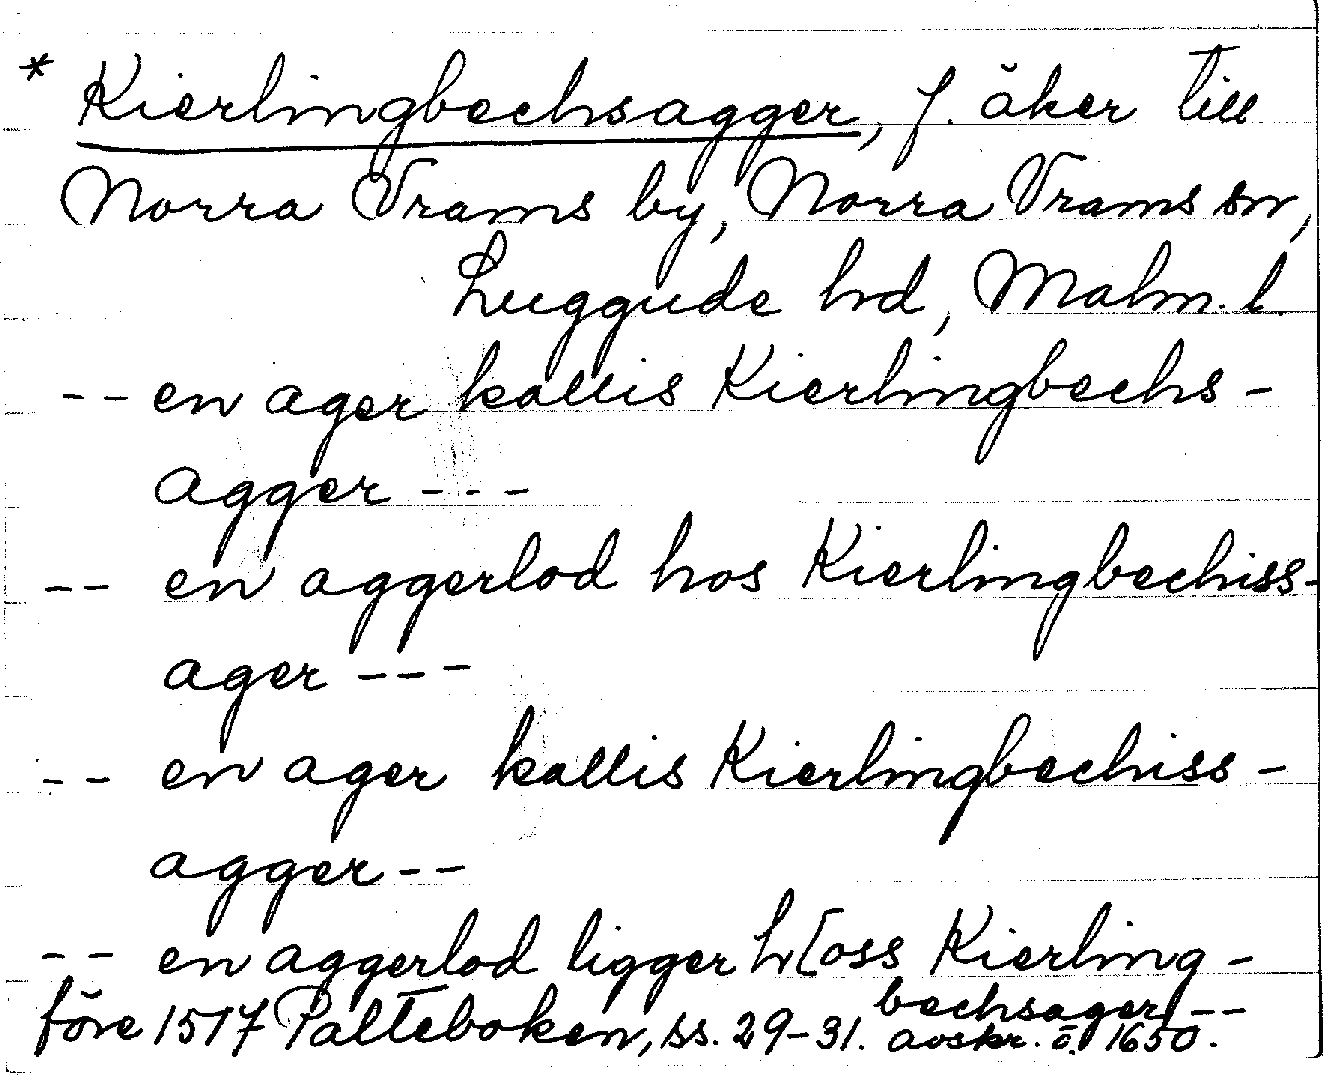 * Kierlingbechsagger, f. åker till
Norra Vrams by, Norra Vrams sn,
Luggude hd, Malm. l.
-- en ager kallis Kierlingbechs-
agger ---
-- en aggerlod hos Kierlingbechiss-
ager ---
-- en ager kallis Kierlingbechiss-
agger --
-- en aggerlod ligger h[oss Kierling-
bechsager --
före 1517 Palteboken, ss. 29-31. avskr. ö. 1650.